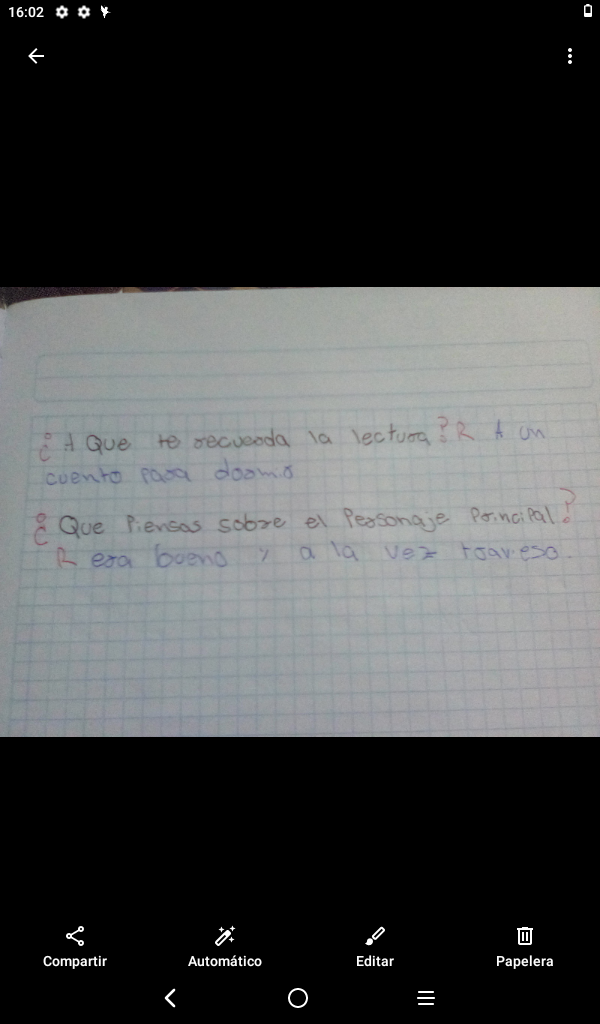 16:02
¿A Que te recuerda la lectura? R A un
cuento para dormir
¿Que Piensas sobre el Personaje Principal?
R era bueno y a la vez travieso.
Compartir
Automático
Editar
Papelera